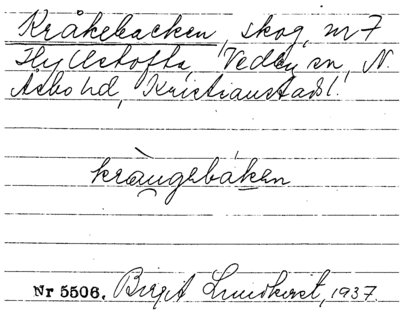 Kråkebacken, skog, nr 7
Hyllstofta, Vedby sn, N.
Åsbo hd, Kristianstads l.
kràugebáken
Nr 5506. Birgit Lundkvist, 1937.